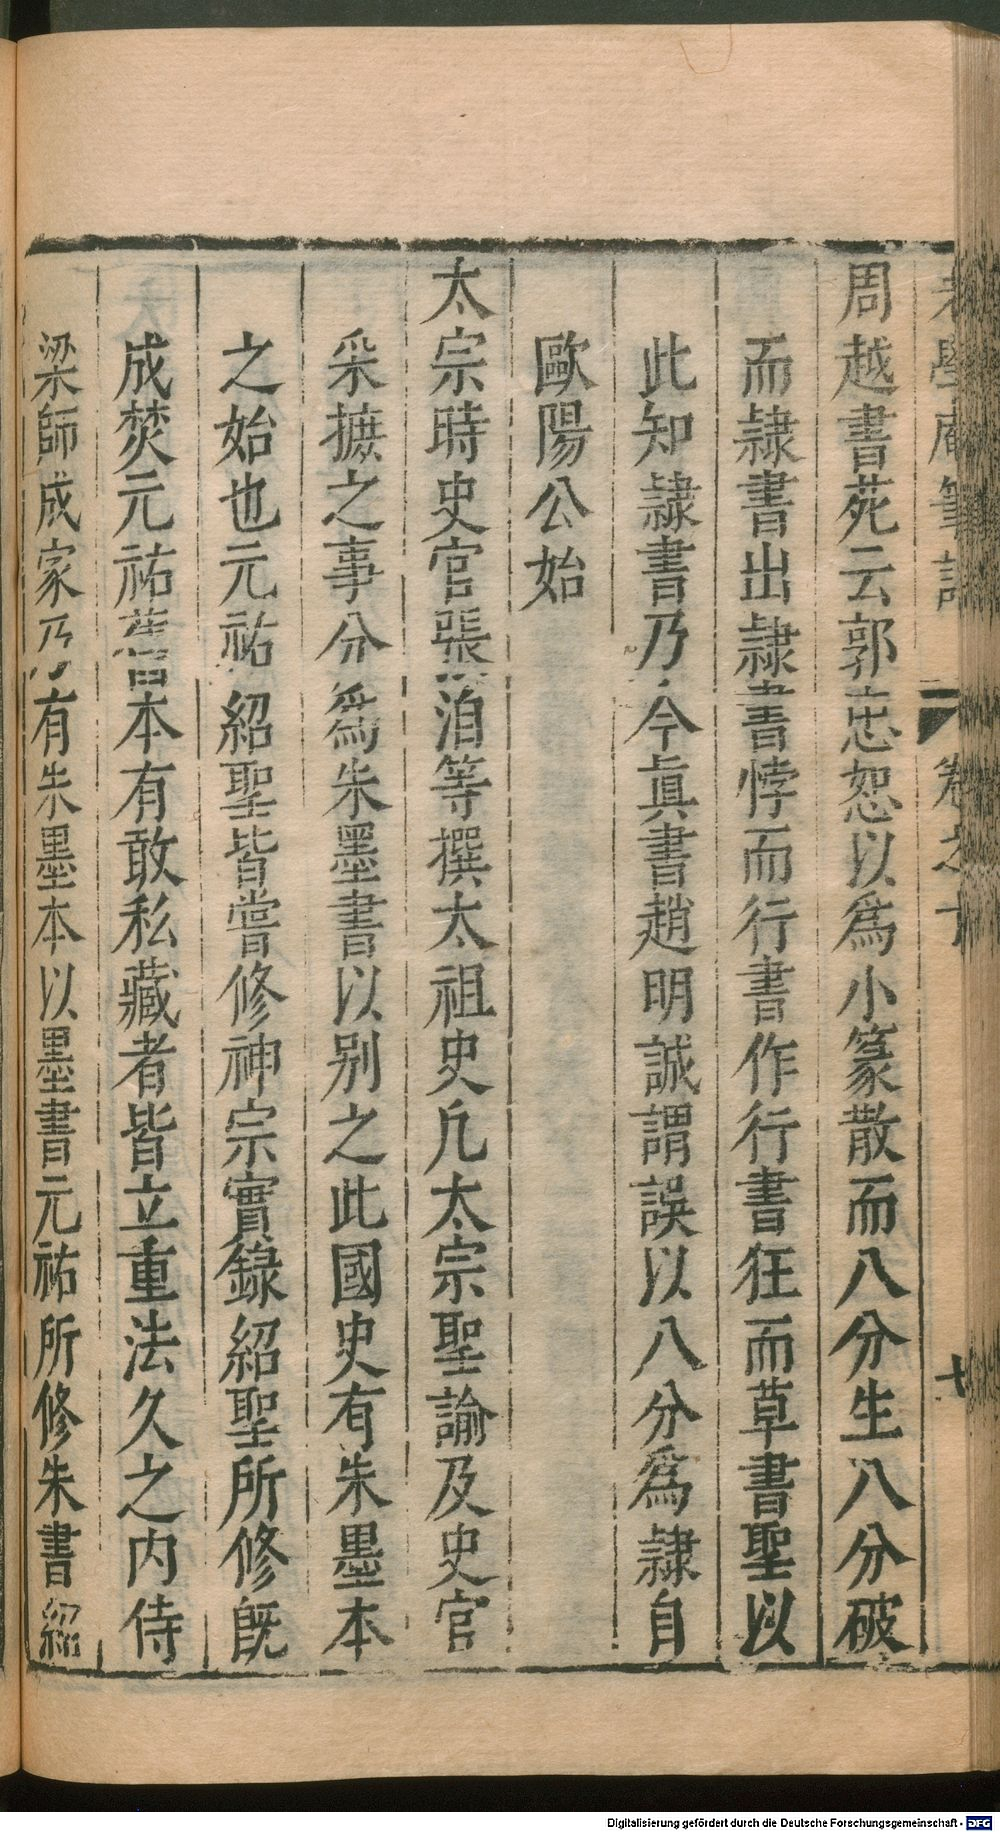 老學庵筆記 卷之十 十
周越書苑云郭忠恕以為小篆散而八分生八分破
而隷書出隷書悖而行書作行書狂而草書聖以
此知隷書乃今眞書趙明誠謂誤以八分為隷自
歐陽公始
太宗時史官張洎等撰太祖史凡太宗聖諭及史官
采摭之事分為朱墨書以别之此國史有朱墨本
之始也元祐紹聖皆嘗修神宗實錄紹聖所修既
成焚元祐舊本有敢私藏者皆立重法久之内侍
梁師成家乃有朱墨本以墨書元祐所修朱書紹
Digitalisierung gefördert durch die Deutsche Forschungsgemeinschaft - DFG